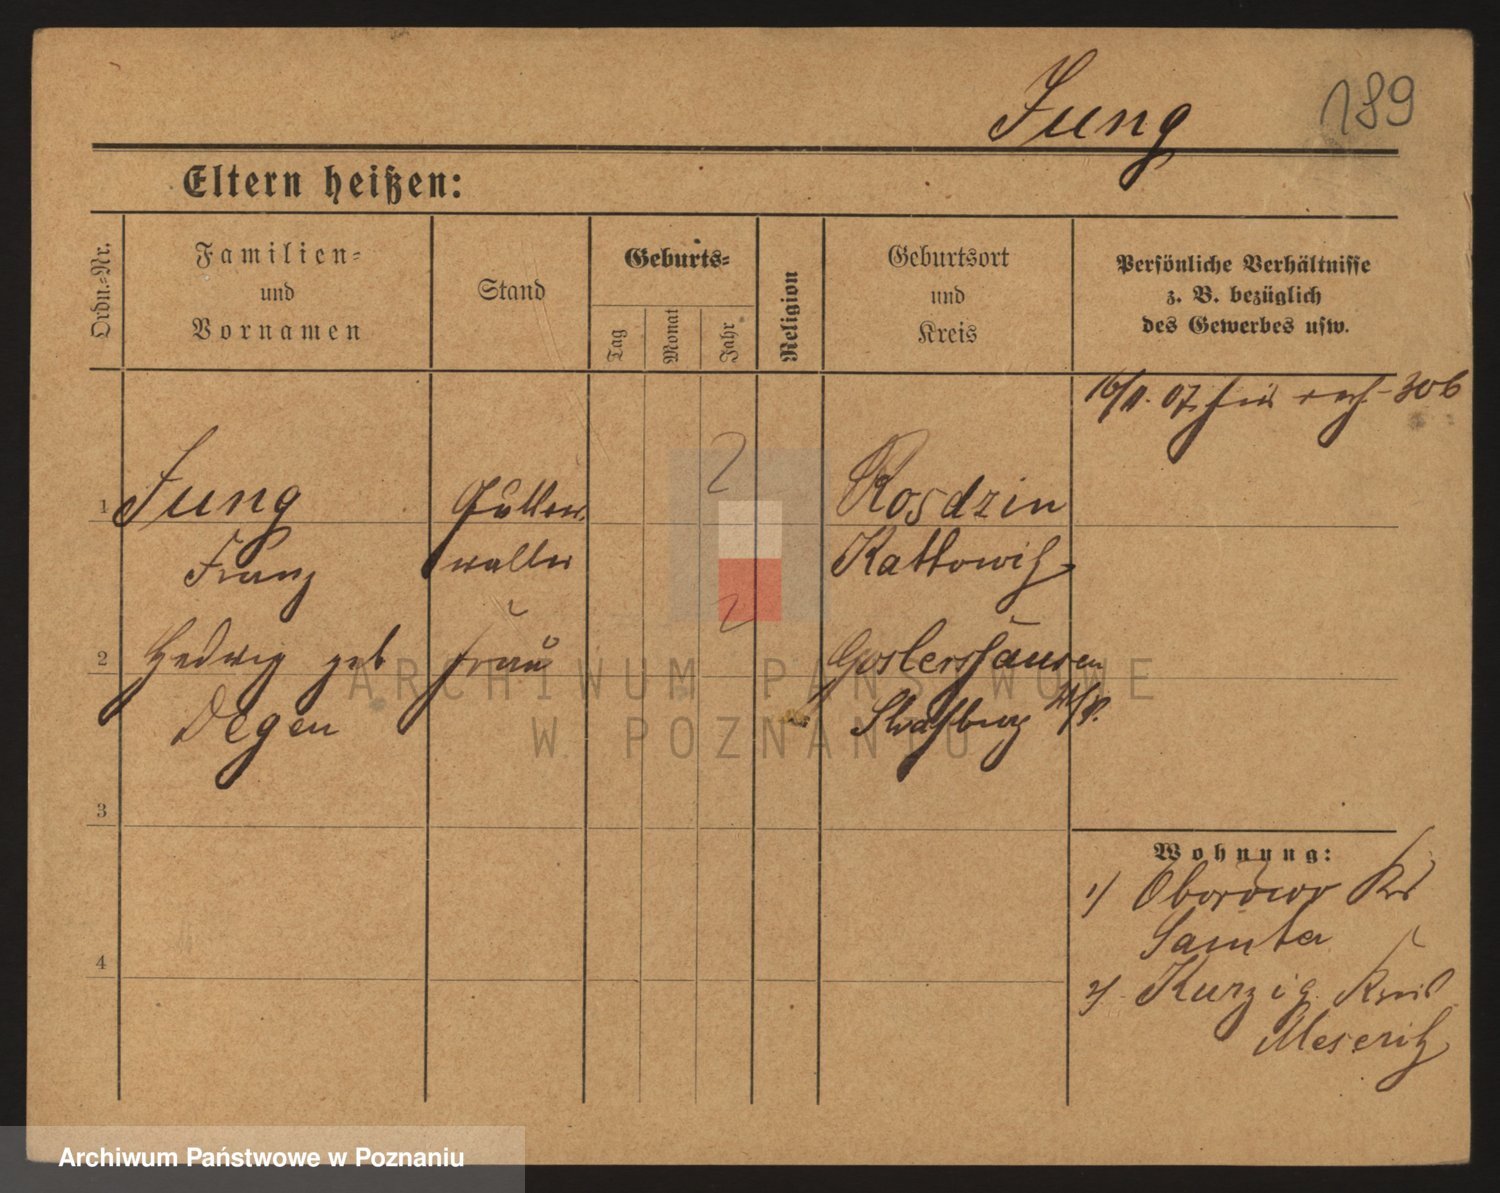 Jung
189
Eltern heißen:
Ordn.-Nr.
Familien-
und
Vornamen
Stand
Geburts-
Tag
Monat
Jahr
Religion
Geburtsort
und
Kreis
Persönliche Verhältnisse
z. B. bezüglich
des Gewerbes usw.
16/11. 07.
306
1
Jung
Franz
Rosdzin
Kattowitz
2
Hedwig geb
Degen
Frau
Goslershausen
Strasburg W/P.
3
4
Wohnung:
1) Oborowo Krs
Samter
2) Kurzig Kreis
Meseritz
ARCHIWUM PAŃSTWOWE
W POZNANIU
Archiwum Państwowe w Poznaniu